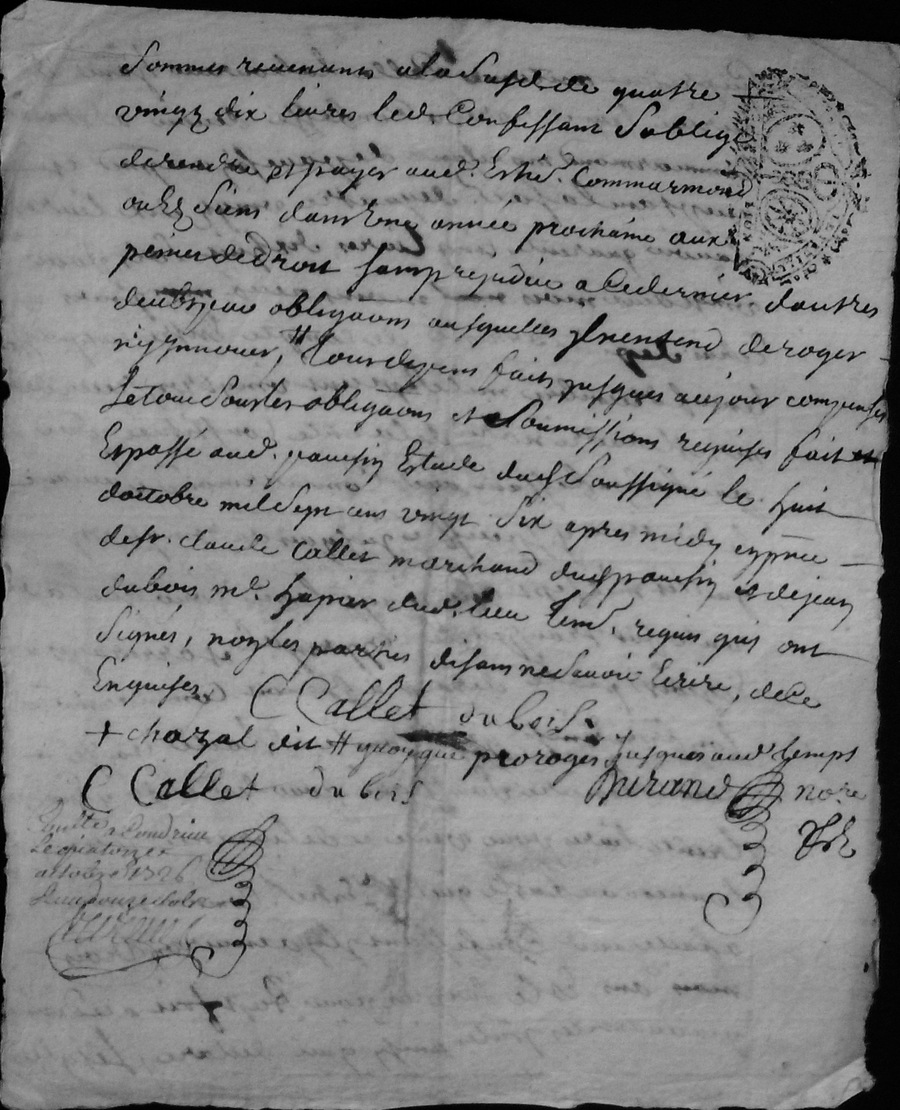 Sommes revenants a la Susd. de quatre +
vingt dix livres led. Confessant Soblige
de rendre et payer aud. Esti. Commarmond
ou es Siens dans Une année prochaine aux
peines de droit Sans prejudice a Ce dernier dautres
obligaons ausquelles Il nentend deroger
ny Innover, # tous depens faits jusques aujour compensés
Le tout Sous les obligaons et Soumissions requises fait et
Et passé aud. Estude du Soussigné le huit
doctobre mil Sept cens vingt Six apres midy en pnce
de sr. claude Callet marchand dud et de jean
dubois md. dud. lieu tem. requis qui ont
Signés, non les parties disant ne Scavoir Ecrire, de Ce
Enquises.
C Callet dubois
+ chazal dit # quoy que proroges Jusques aud temps
C Callet dubois Durand nore
a Condrieu
le quatorze
octobre 1726
Receu douze sols